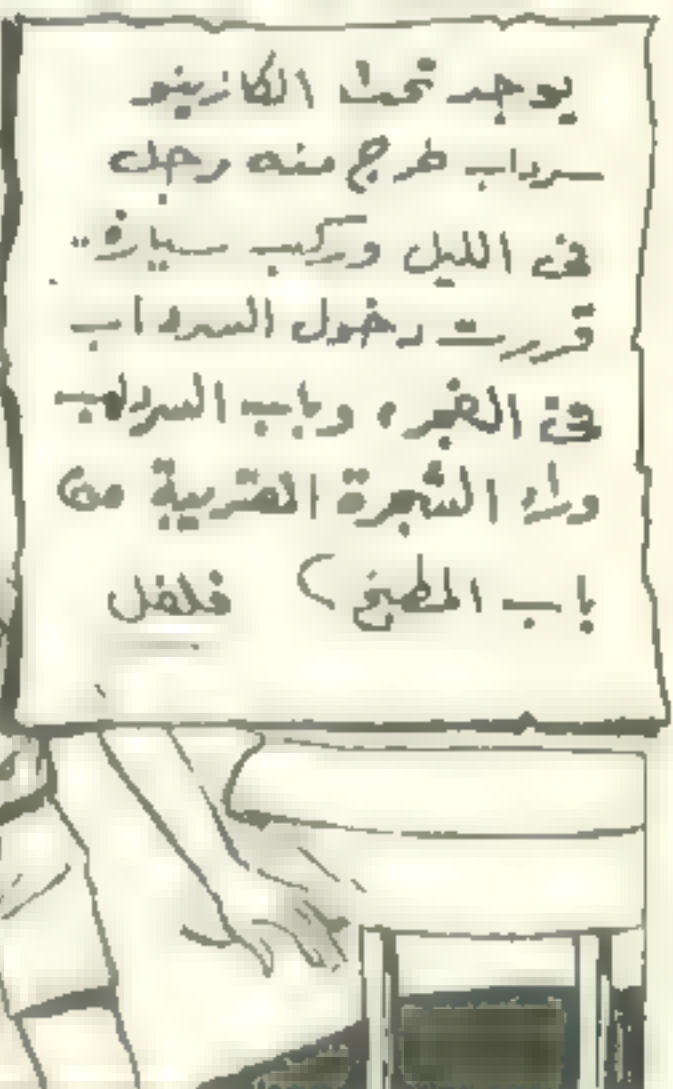 يوجد تحت الكازينو
سرداب خرج منه رجل
فى الليل وركب سيارة ..
قررت دخول السرداب
فى الفجر ، وباب السرداب
وراء الشجرة القريبة من
باب المطبخ ) فلفل